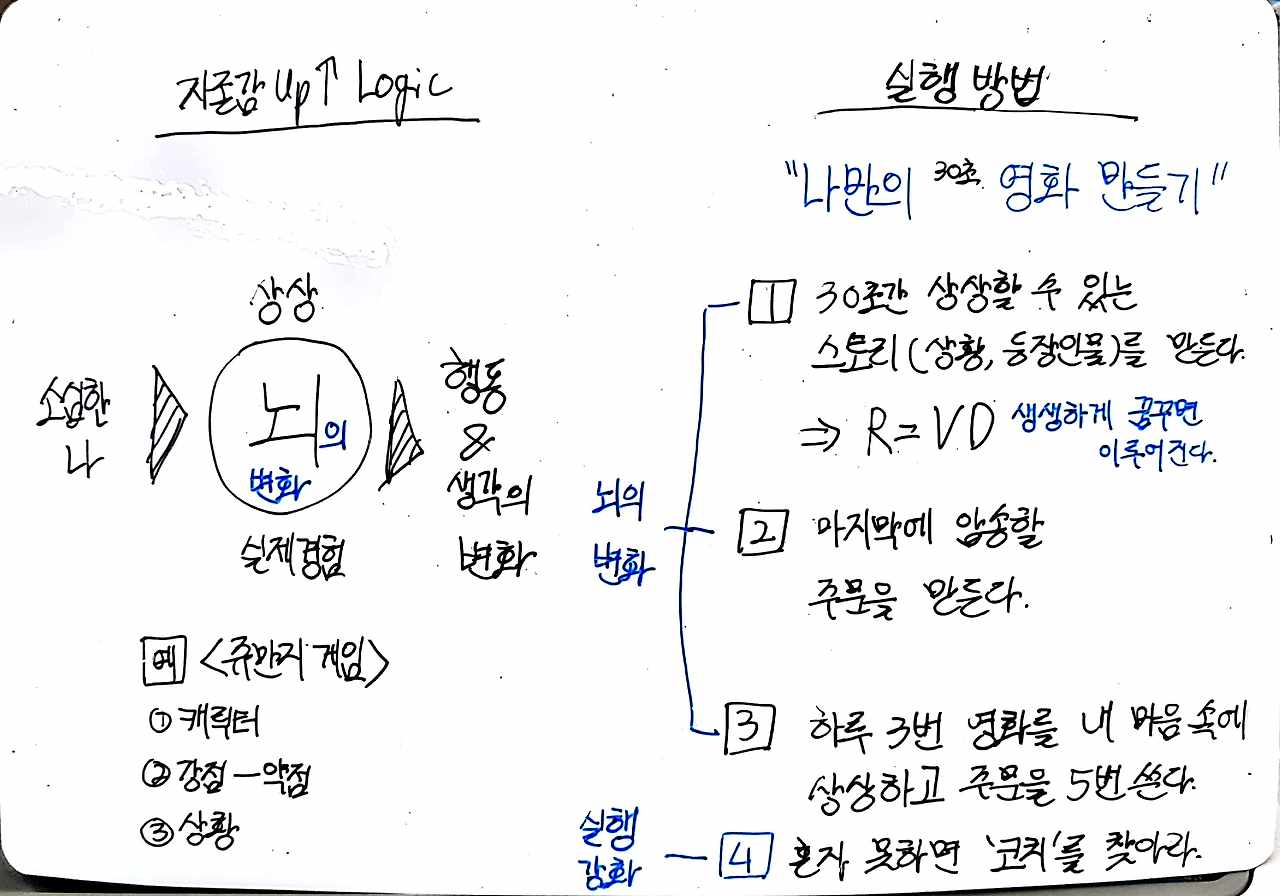 자존감 Up↑ Logic
상상
소심한
나
뇌의
변화
실제경험
행동
&
생각의
변화
예 <쥬만지 게임>
① 캐릭터
② 강점 - 약점
③ 상황
실행 방법
"나만의 30초 영화 만들기"
뇌의
변화
1 30초간 상상할 수 있는
스토리(상황, 등장인물)를 만든다.
⇒ R = VD 생생하게 꿈꾸면
이루어진다.
2 마지막에 암송할
주문을 만든다.
3 하루 3번 영화를 내 마음 속에
상상하고 주문을 5번 쓴다.
실행
강화
4 혼자 못하면 '코치'를 찾아라.